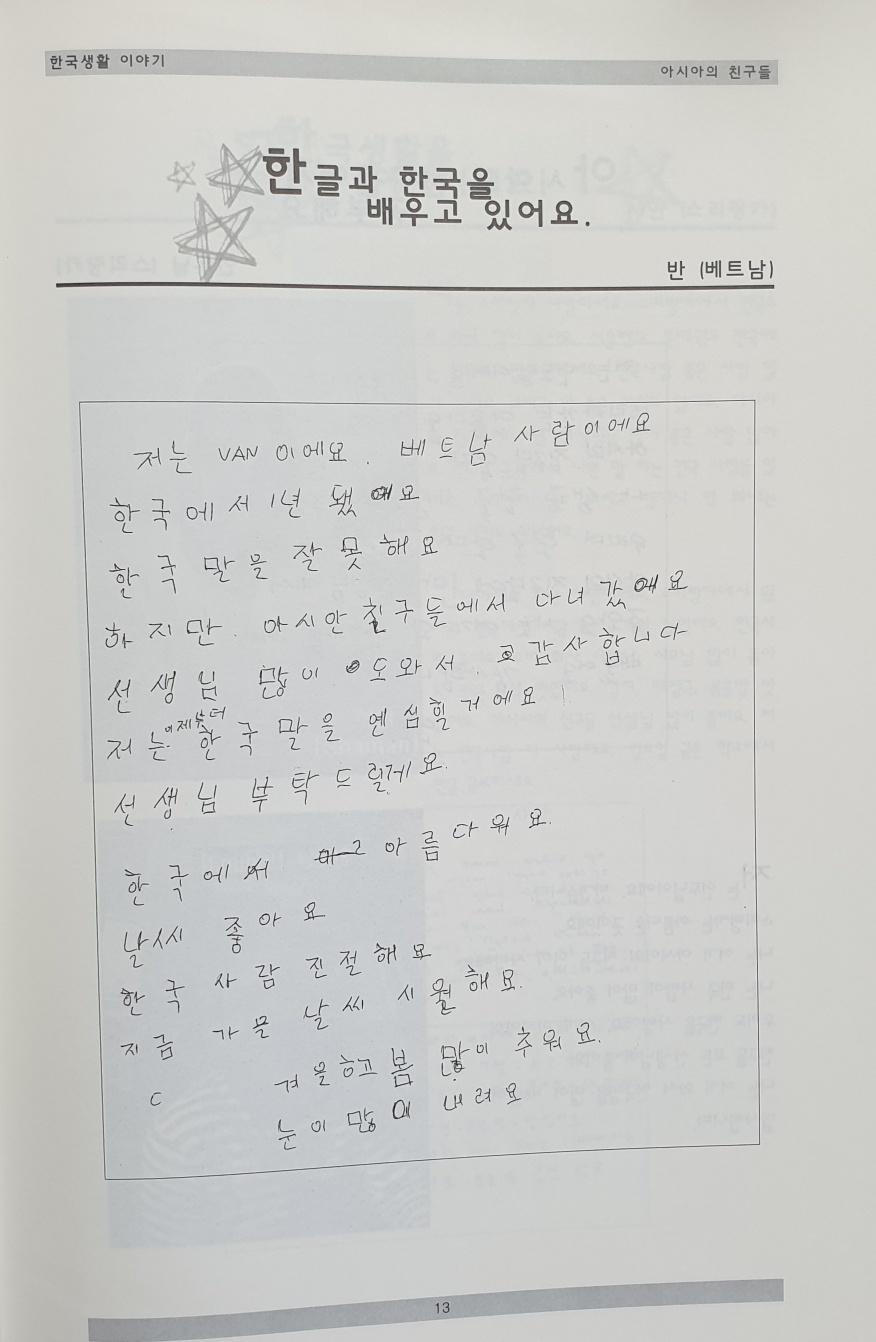 한국생활 이야기
아시아의 친구들
한글과 한국을
배우고 있어요.
반 (베트남)
저는 VAN 이에요. 베트남 사람이에요
한국에서 1년 됐에요
한국말을 잘 못해요
하지만. 아시안 칭구들에서 다녀갔에요
선생님 많이 도와서. 갑사합니다
저는 이제부터 한국말을 엔심힐거에요!
선생님 부탁드릴게요.
한국에서 아름다워요.
날시 좋아요
한국사람 진절해요
지금 가믈 날씨 시월해요.
겨울하고 봄 많이 추워요.
눈이 많에 내려요
13